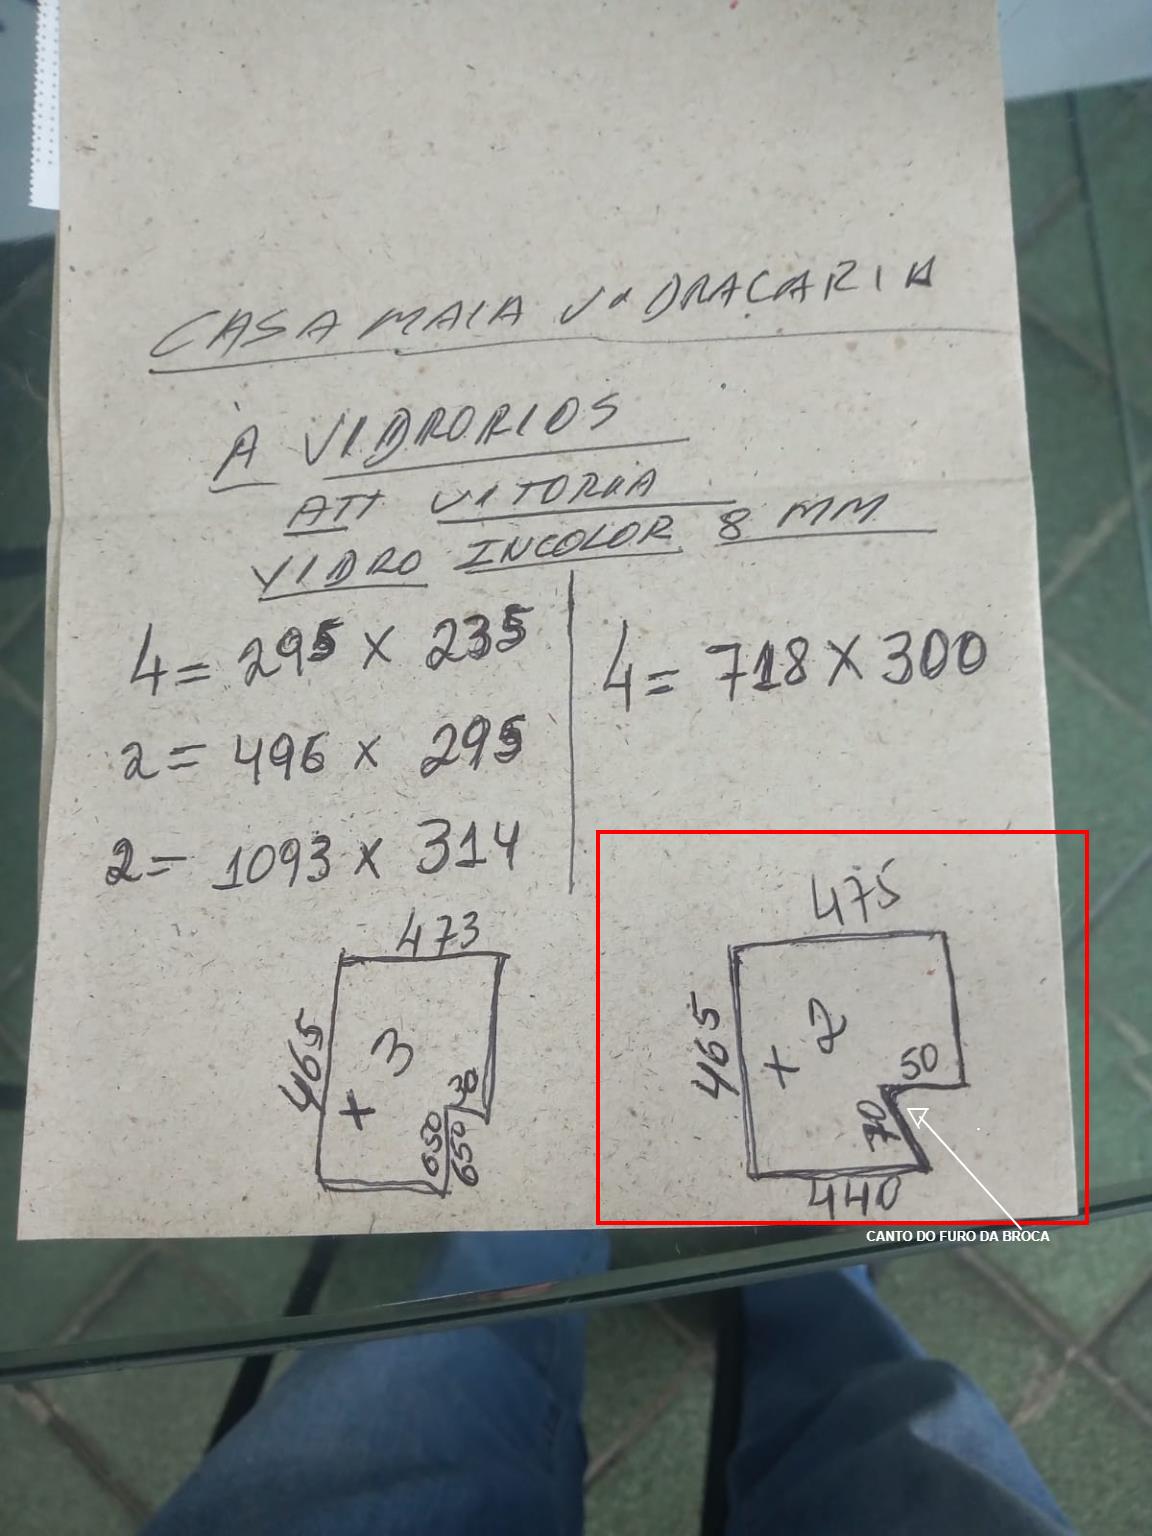 CASA MAIA VIDRAÇARIA
À VIDRORIOS
ATT VITORIA
VIDRO INCOLOR 8 MM
4 = 295 X 235
2 = 496 X 295
2 = 1093 X 314
4 = 718 X 300
473
465
+ 3
30
050
650
475
465
+ 2
50
70
440
CANTO DO FURO DA BROCA